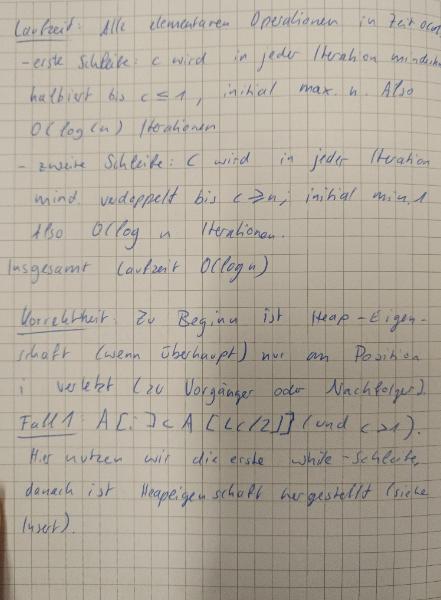 Laufzeit: Alle elementaren Operationen in Zeit O(1)
- erste Schleife: c wird in jeder Iteration mindestens
halbiert bis c ≤ 1, initial max. n. Also
O(log(n)) Iterationen
- zweite Schleife: c wird in jeder Iteration
mind. verdoppelt bis c ≥ n; initial min. 1
Also O(log n Iterationen.
Insgesamt Laufzeit O(log n)
Korrektheit: Zu Beginn ist Heap-Eigen-
schaft (wenn überhaupt) nur an Position
i verletzt (zu Vorgänger oder Nachfolger).
Fall 1: A[i] < A[⌊c/2⌋] (und c>1).
Hier nutzen wir die erste while-Schleife,
danach ist Heapeigenschaft hergestellt (siehe
Insert).